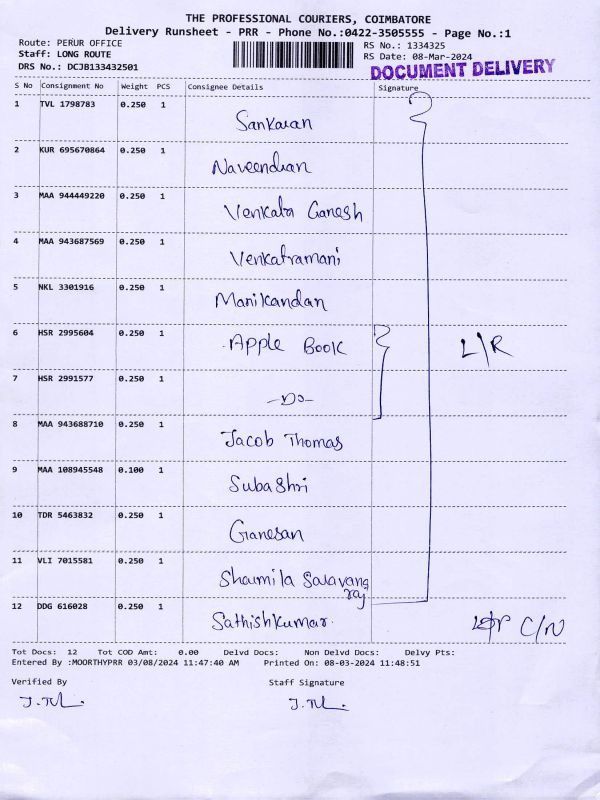 THE PROFESSIONAL COURIERS, COIMBATORE
Delivery Runsheet - PRR - Phone No.:0422-3505555 - Page No.:1
Route: PERUR OFFICE
Staff: LONG ROUTE
DRS No.: DCJB133432501
RS No.: 1334325
RS Date: 08-Mar-2024
DOCUMENT DELIVERY
S No Consignment No Weight PCS Consignee Details Signature
1 TVL 1798783 0.250 1 Sankaran
2 KUR 695670864 0.250 1 Naveendran
3 MAA 944449220 0.250 1 Venkata Ganesh
4 MAA 943687569 0.250 1 Venkatramani
5 NKL 3301916 0.250 1 Manikandan
6 HSR 2995604 0.250 1 Apple Book L/R
7 HSR 2991577 0.250 1 -Do-
8 MAA 943688710 0.250 1 Jacob Thomas
9 MAA 108945548 0.100 1 Subashri
10 TDR 5463832 0.250 1 Ganesan
11 VLI 7015581 0.250 1 Sharmila Saravana
raj
12 DDG 616028 0.250 1 Sathishkumar. C/N
Tot Docs: 12 Tot COD Amt: 0.00 Delvd Docs: Non Delvd Docs: Delvy Pts:
Entered By :MOORTHYPRR 03/08/2024 11:47:40 AM Printed On: 08-03-2024 11:48:51
Verified By Staff Signature